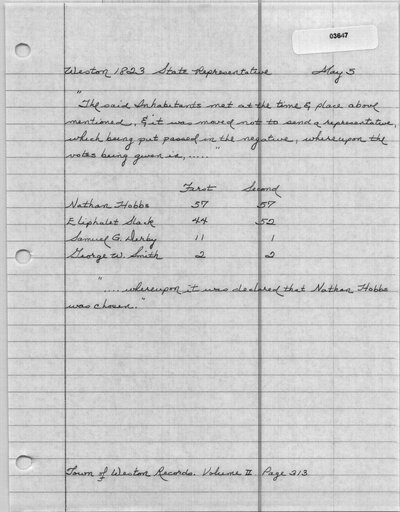 03647
Weston 1823 State Representative May 5
"The said Inhabitants met at the time & place above
mentioned, & it was moved not to send a representative,
which being put passed in the negative, whereupon the
votes being given in, ....."
First Second
Nathan Hobbs 57 57
Eliphalet Slack 44 52
Samuel G. Derby 11 1
George W. Smith 2 2
".... whereupon it was declared that Nathan Hobbs
was chosen."
Town of Weston Records. Volume II Page 313